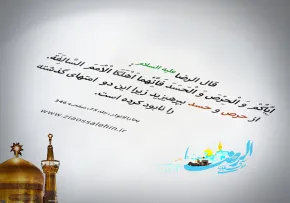 قال الرضا علیه السلام :
ایاکم و الحرص و الحسد فانهما اهلکا الامم السالفة.
از حرص و حسد بپرهیزید زیرا این دو امتهای گذشته
را نابود کرده است.
بحارالانوار، جلد ۷۸، صفحه ۳۴۶
www.ziaossalehin.ir